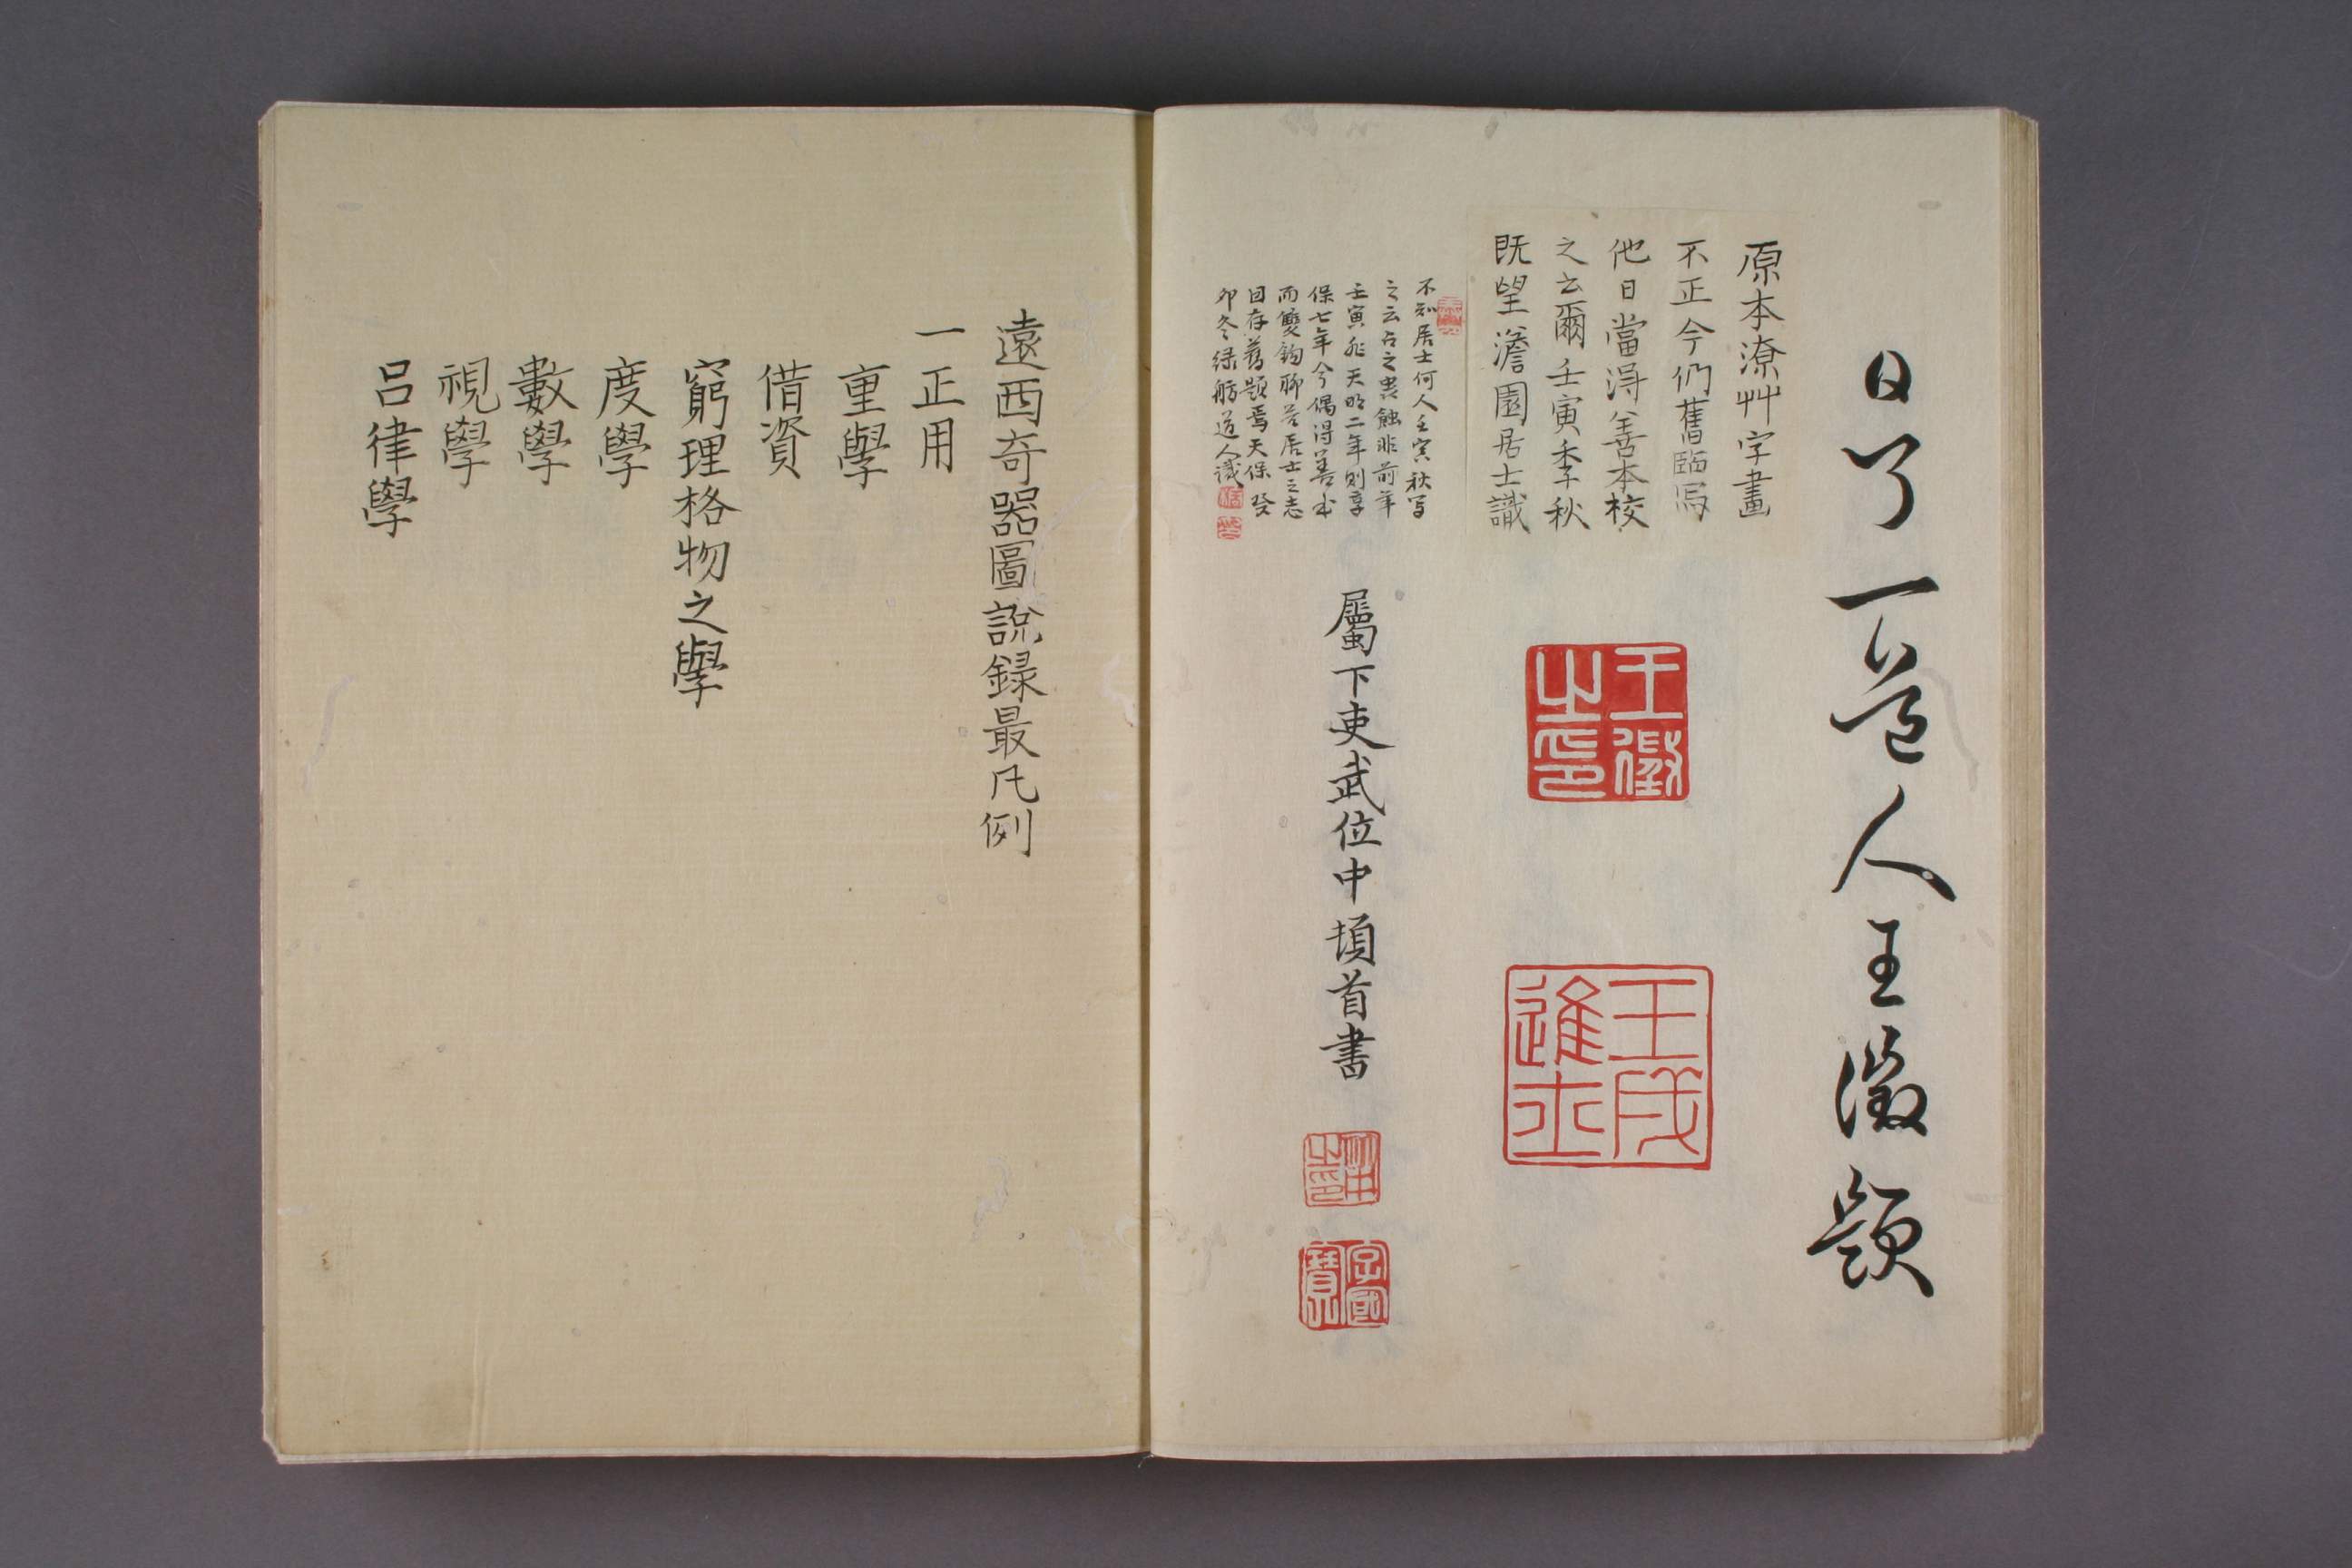 日了一道人王徵題
原本潦艸字畫
不正今們舊臨寫
他日當淂善本校
之云爾壬寅季秋
既望澹園居士識
王徵之印
王戌進士
不知居士何人壬寅秋写
之云占之蟲蝕非前年
壬寅非天明二年則享
保七年今偶得善本
而雙鉤聊答居士之志
因存舊題焉天保癸
卯冬緑舫道人識
屬下吏武位中頓首書
遠西奇器圖說録最凡例
一正用
重學
借資
窮理格物之學
度學
數學
視學
呂律學